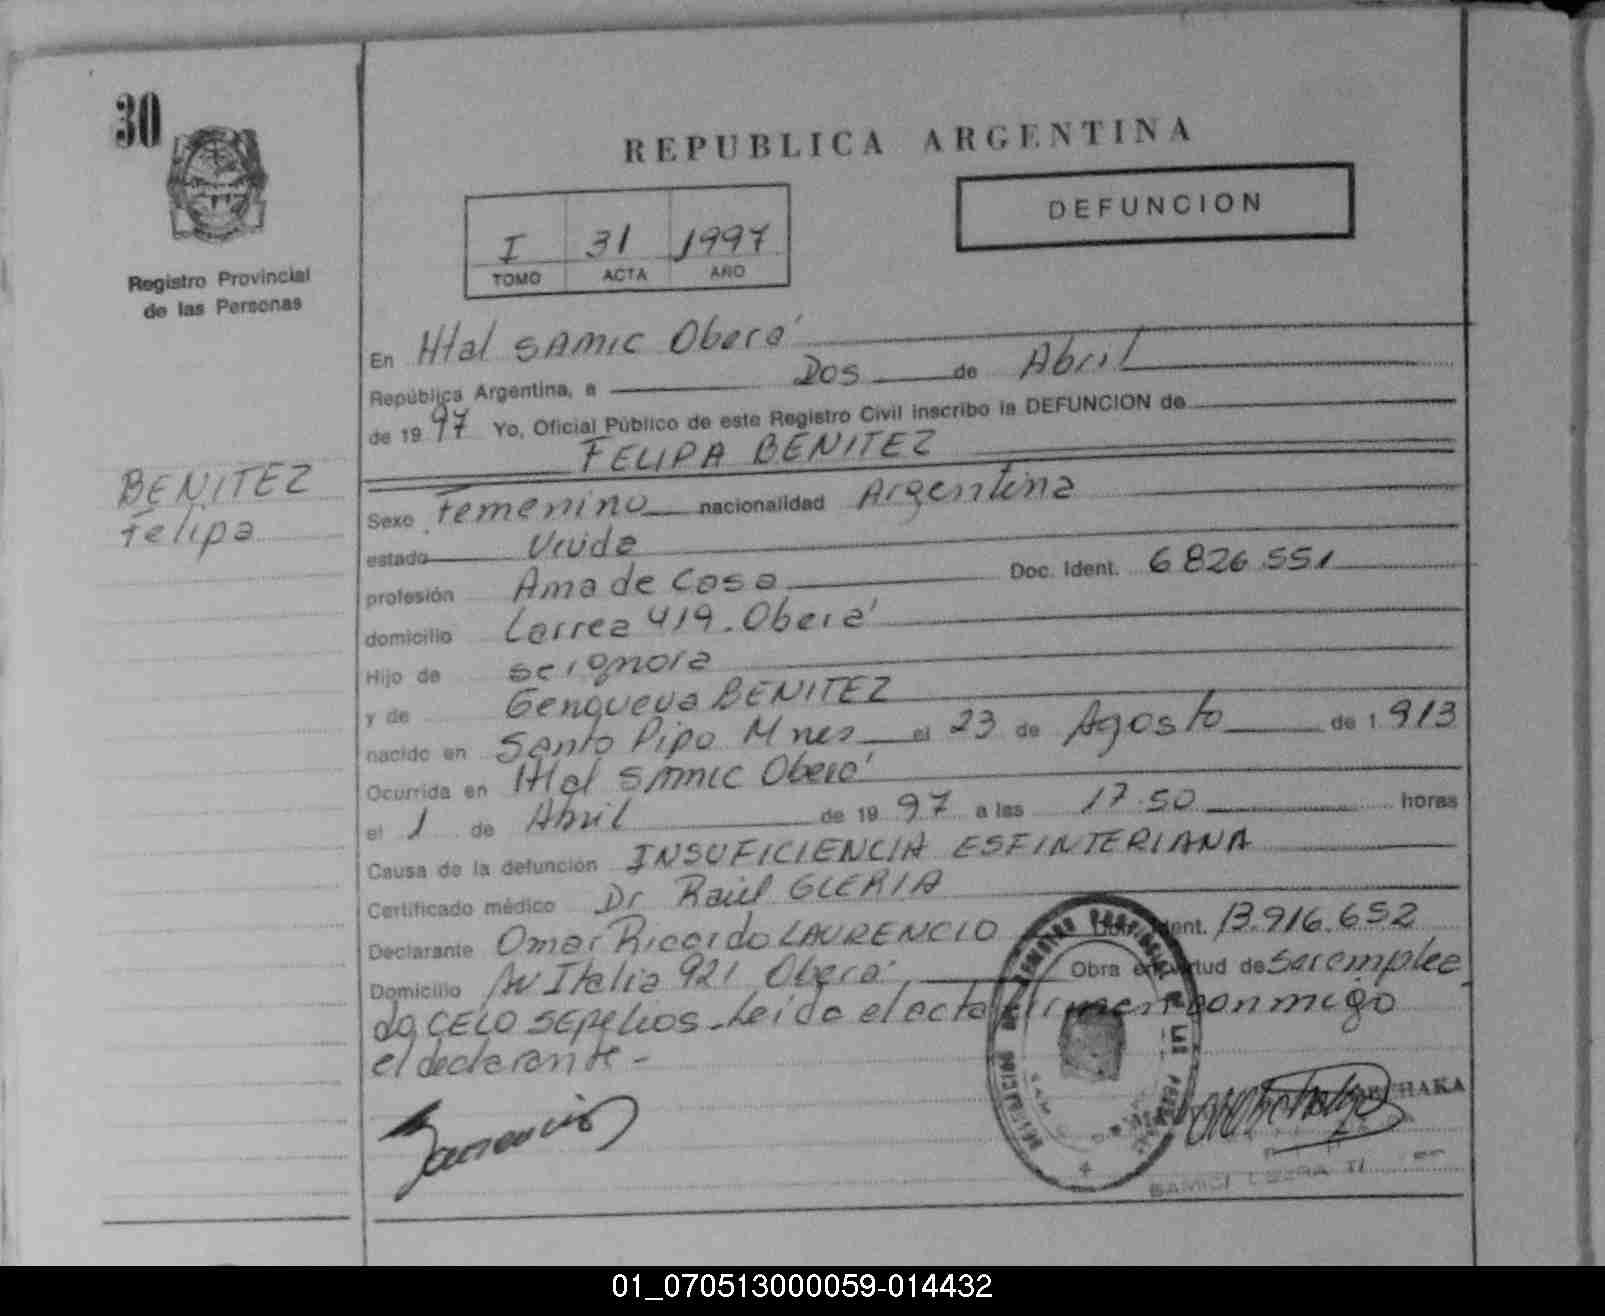 30
REPUBLICA ARGENTINA
DEFUNCION
I 31 1997
TOMO ACTA AÑO
Registro Provincial
de las Personas
En Htal SAMIC Oberá
República Argentina, a Dos de Abril
de 1997 Yo, Oficial Público de este Registro Civil inscribo la DEFUNCION de
FELIPA BENITEZ
BENITEZ
Felipa
Sexo Femenino nacionalidad Argentina
estado Viuda
profesión Ama de Casa Doc. Ident. 6826.551
domicilio Larrea 419. Oberá
Hijo de se ignora
y de Genoveva BENITEZ
nacido en Santo Pipo Mnes el 23 de Agosto de 1.913
Ocurrida en Htal SAMIC Oberá
el 1 de Abril de 1997 a las 17.50 horas
Causa de la defunción INSUFICIENCIA ESFINTERIANA
Certificado médico Dr Raúl GLERIA
Declarante Omar Ricardo LAURENCIO Ident. 13.916.652
Domicilio Av Italia 921 Oberá Obra en virtud de ser emplea
do CELO Sepelios. Leída el acta firman conmigo
el declarante -
01_070513000059-014432